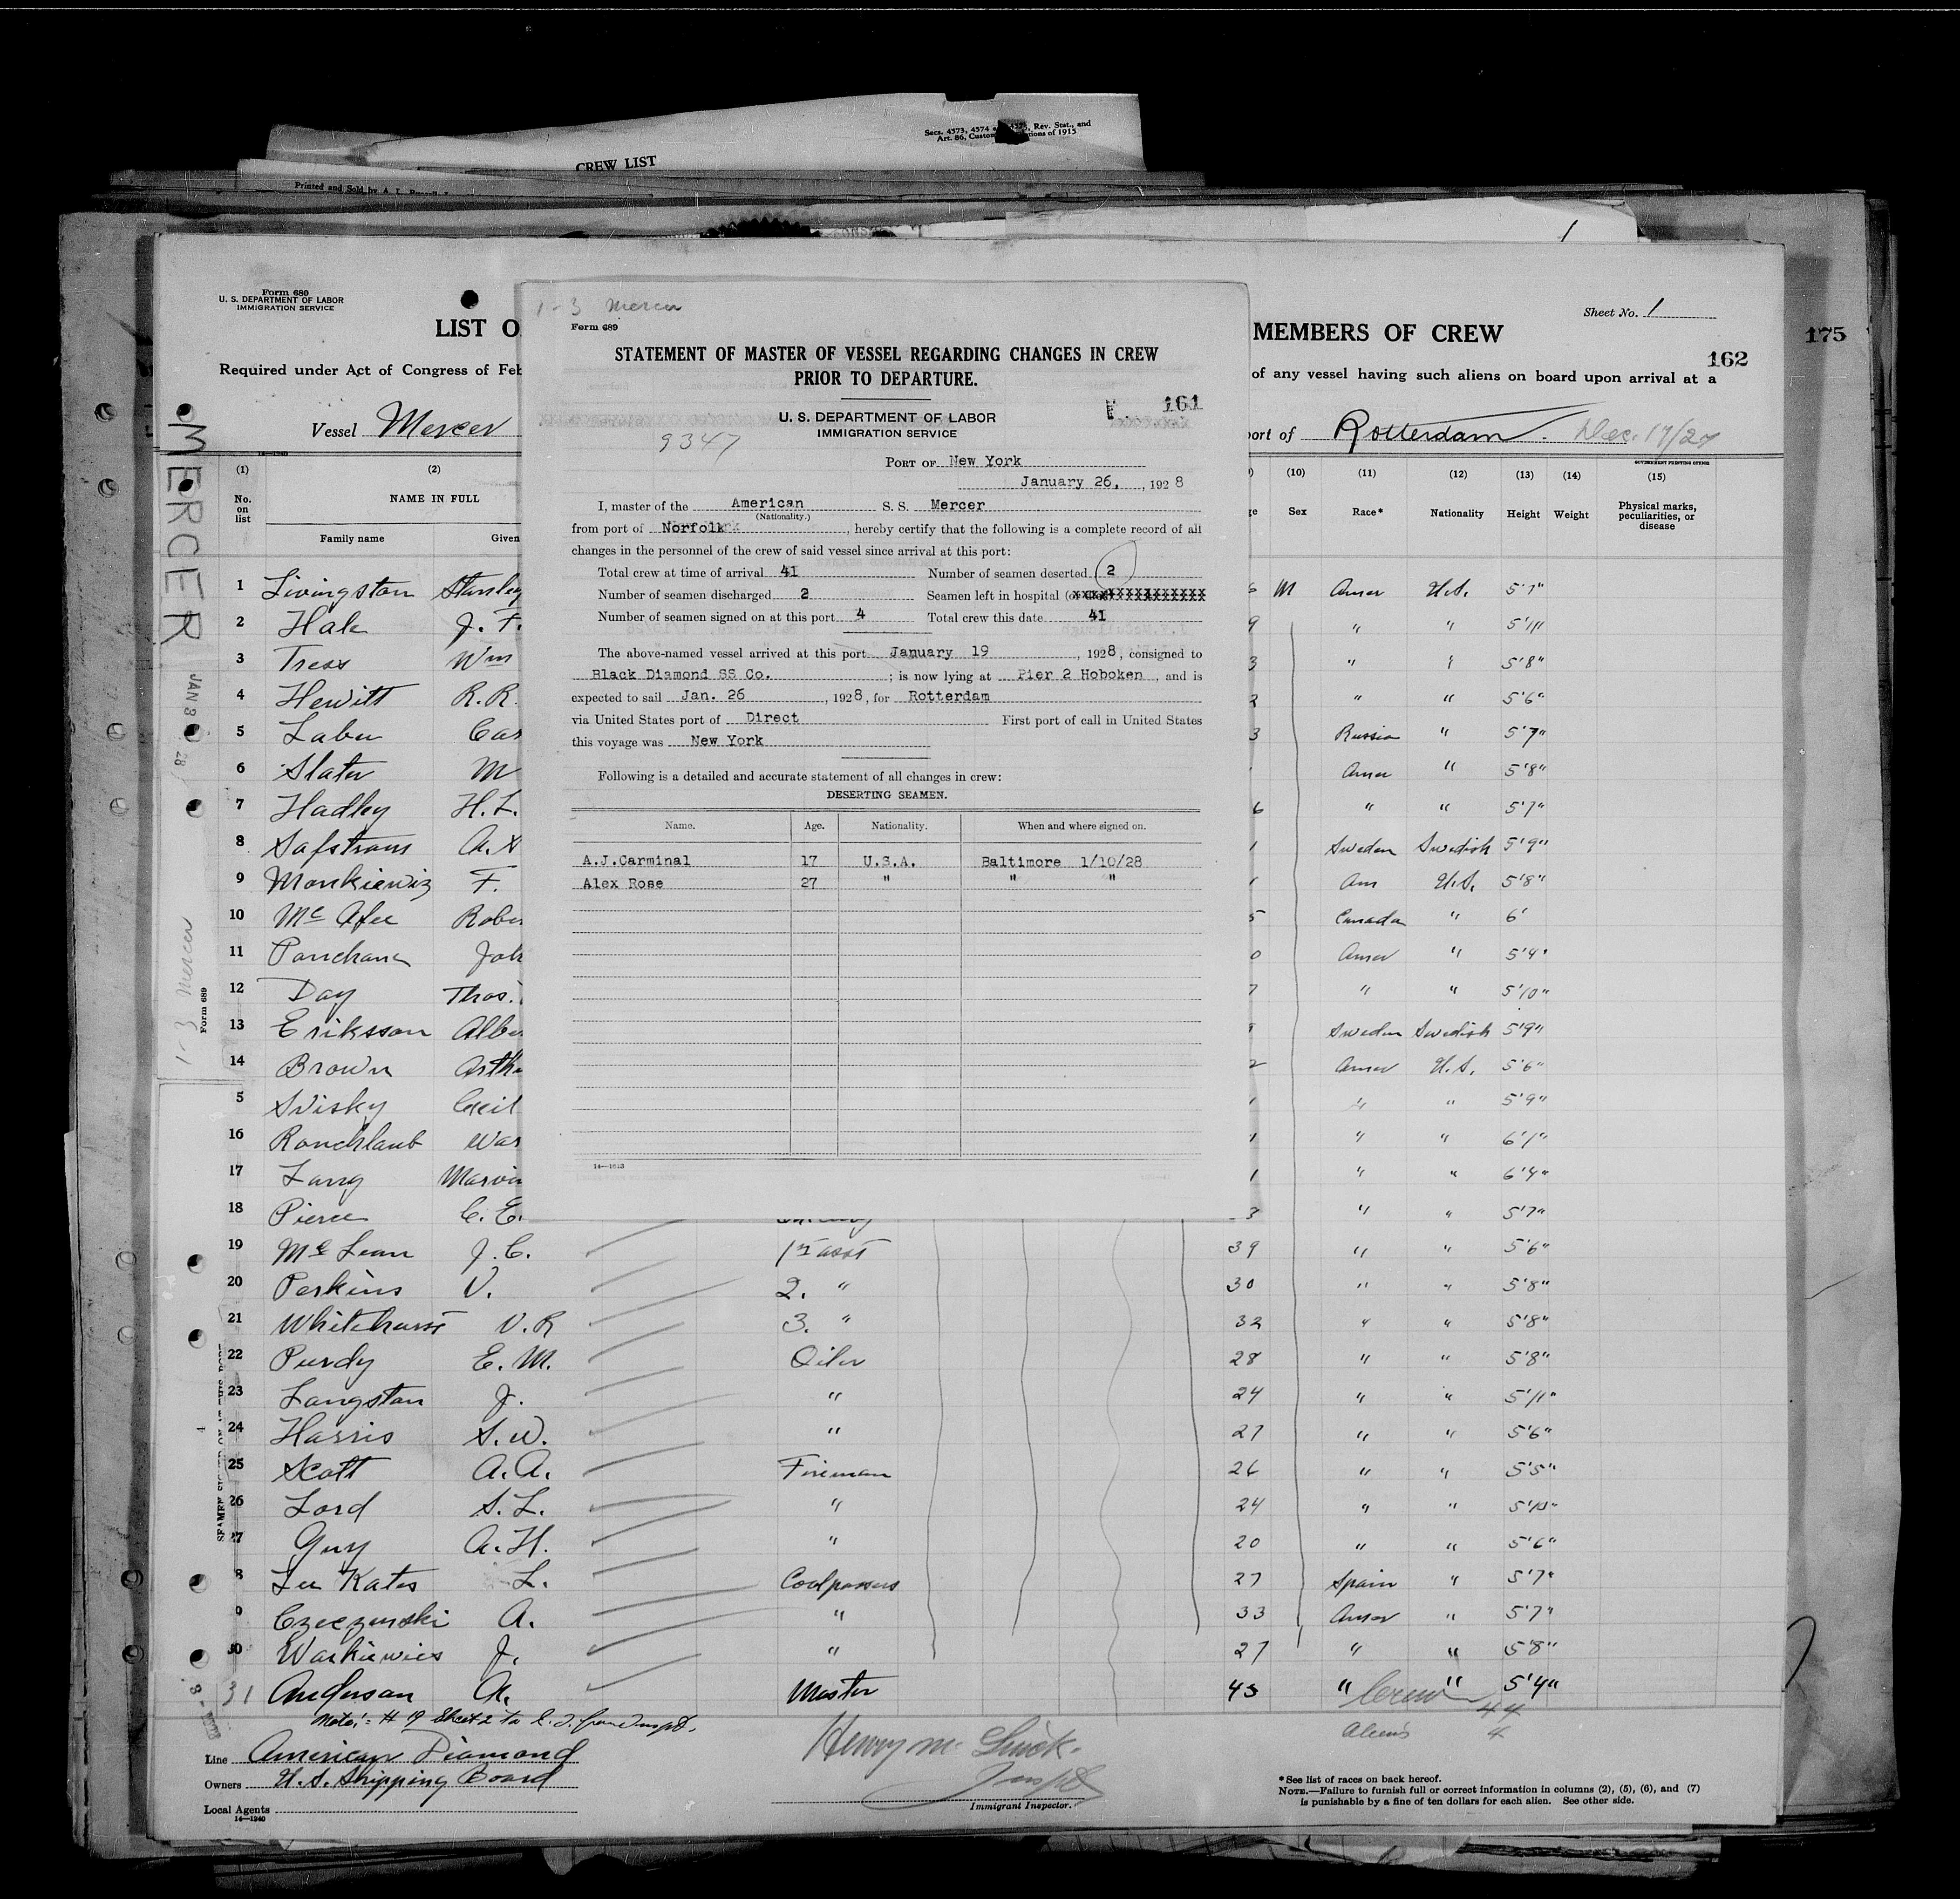 Secs. 4573, 4574 a 4575, Rev. Stat., and
Art. 86, Custom tions of 1915
CREW LIST
Printed and Sold by A. L.
1
Form 680
U. S. DEPARTMENT OF LABOR
IMMIGRATION SERVICE
LIST O
MEMBERS OF CREW
Sheet No. 1
175
162
Required under Act of Congress of Feb
of any vessel having such aliens on board upon arrival at a
Vessel Mercer
ort of Rotterdam. Dec. 17/27
MERCER
1-3 Mercer
Form 689
STATEMENT OF MASTER OF VESSEL REGARDING CHANGES IN CREW
PRIOR TO DEPARTURE.
U. S. DEPARTMENT OF LABOR
IMMIGRATION SERVICE
161
9347
PORT OF New York
January 26, , 1928
I, master of the American S. S. Mercer
(Nationality.)
from port of Norfolk , hereby certify that the following is a complete record of all
changes in the personnel of the crew of said vessel since arrival at this port:
Total crew at time of arrival 41 Number of seamen deserted 2
Number of seamen discharged 2 Seamen left in hospital (or
Number of seamen signed on at this port 4 Total crew this date 41
The above-named vessel arrived at this port January 19 , 1928, consigned to
Black Diamond SS Co. ; is now lying at Pier 2 Hoboken , and is
expected to sail Jan. 26 , 1928, for Rotterdam
via United States port of Direct First port of call in United States
this voyage was New York
Following is a detailed and accurate statement of all changes in crew:
DESERTING SEAMEN.
Name. Age. Nationality. When and where signed on.
A.J.Carminal 17 U.S.A. Baltimore 1/10/28
Alex Rose 27 " " "
14—1240
(1) (2) (10) (11) (12) (13) (14) (15)
GOVERNMENT PRINTING OFFICE
No. on list NAME IN FULL Sex Race* Nationality Height Weight Physical marks, peculiarities, or disease
Family name Given
1 Livingston Stanley 6 M Amer U.S. 5'7"
2 Hale J. F. 9 " " 5'11"
3 Tress Wm 3 " " 5'8"
4 Hewitt R.R. 2 " " 5'6"
5 Laben Cas 3 Russia " 5'7"
6 Slater M Amer " 5'8"
7 Hadley H.L. 6 " " 5'7"
8 Safstrom A. 1 Sweden Swedish 5'9"
9 Monkiewiz F. 1 Am U.S. 5'8"
10 Mc Afee Rober 5 Canada " 6'
11 Ponchans Joh 0 Amer " 5'4"
12 Day Thos. 7 " " 5'10"
13 Eriksson Alber Sweden Swedish 5'9"
14 Brown Arthu 2 Amer U.S. 5'6"
5 Svisky Cecil 1 " " 5'9"
16 Ronchlaub War 1 " " 6'1"
17 Lang Marvin 1 " " 6'4"
18 Pierce C. E. 3 " " 5'7"
19 Mc Lean J.C. 1st asst 39 " " 5'6"
20 Perkins V. 2. " 30 " " 5'8"
21 Whitehurst V.R 3. " 32 " " 5'8"
22 Purdy E. M. Oiler 28 " " 5'8"
23 Langston J. " 24 " " 5'11"
24 Harris S.W. " 27 " " 5'6"
25 Scott A.A. Fireman 26 " " 5'5"
26 Lord S.L. " 24 " " 5'10"
27 Guy A.H. " 20 " " 5'6"
8 Lee Kates L. Coalpassers 27 Spain " 5'7"
9 Czeczurski A. " 33 Amer " 5'7"
30 Warkiewics J. " 27 " " 5'8"
31 Anderson A. Master 43 " " 5'4"
Crew 44
Aliens 4
JAN 3 28
1-3 Mercer
Form 689
Line American Diamond
Owners U.S. Shipping Board
Local Agents
14—1240
Immigrant Inspector.
*See list of races on back hereof.
NOTE.—Failure to furnish full or correct information in columns (2), (5), (6), and (7)
is punishable by a fine of ten dollars for each alien. See other side.